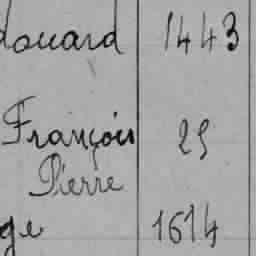 douard 1443
François 25
Pierre
ge 1614